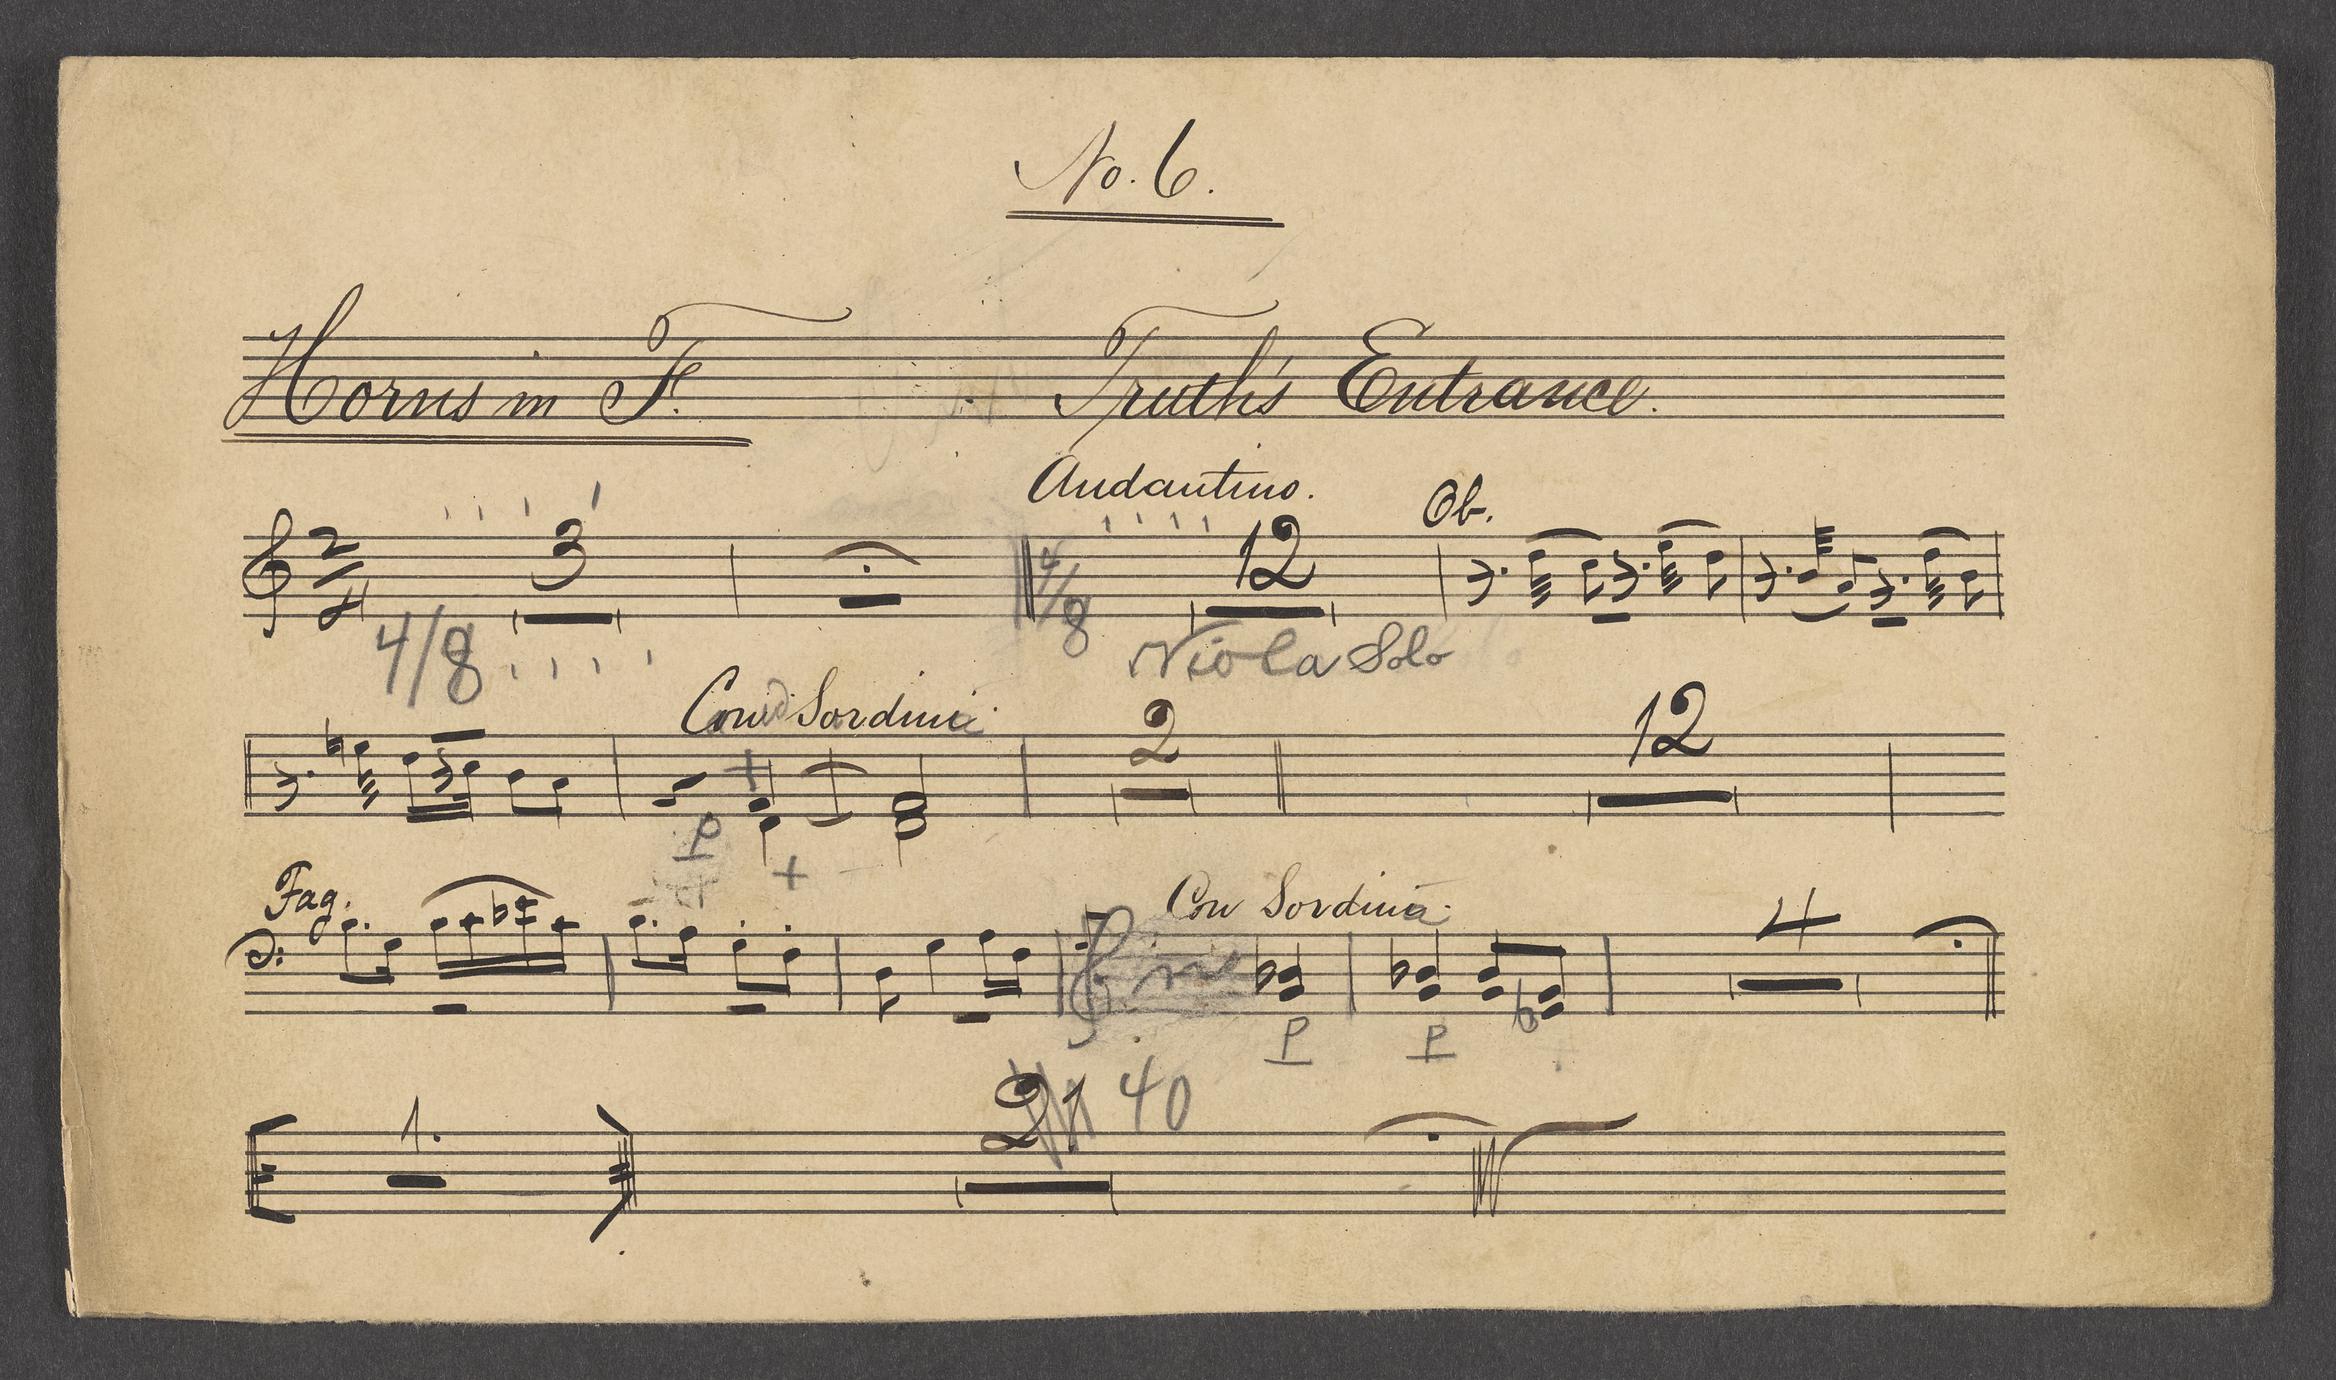 No. 6.
Horns in F. Truth's Entrance.
Andantino.
Ob.
2/4 3 4/8 12
4/8 Viola Solo
Con Sordini
2 12
p
Fag. Con Sordini
4
p p
21 40
1.